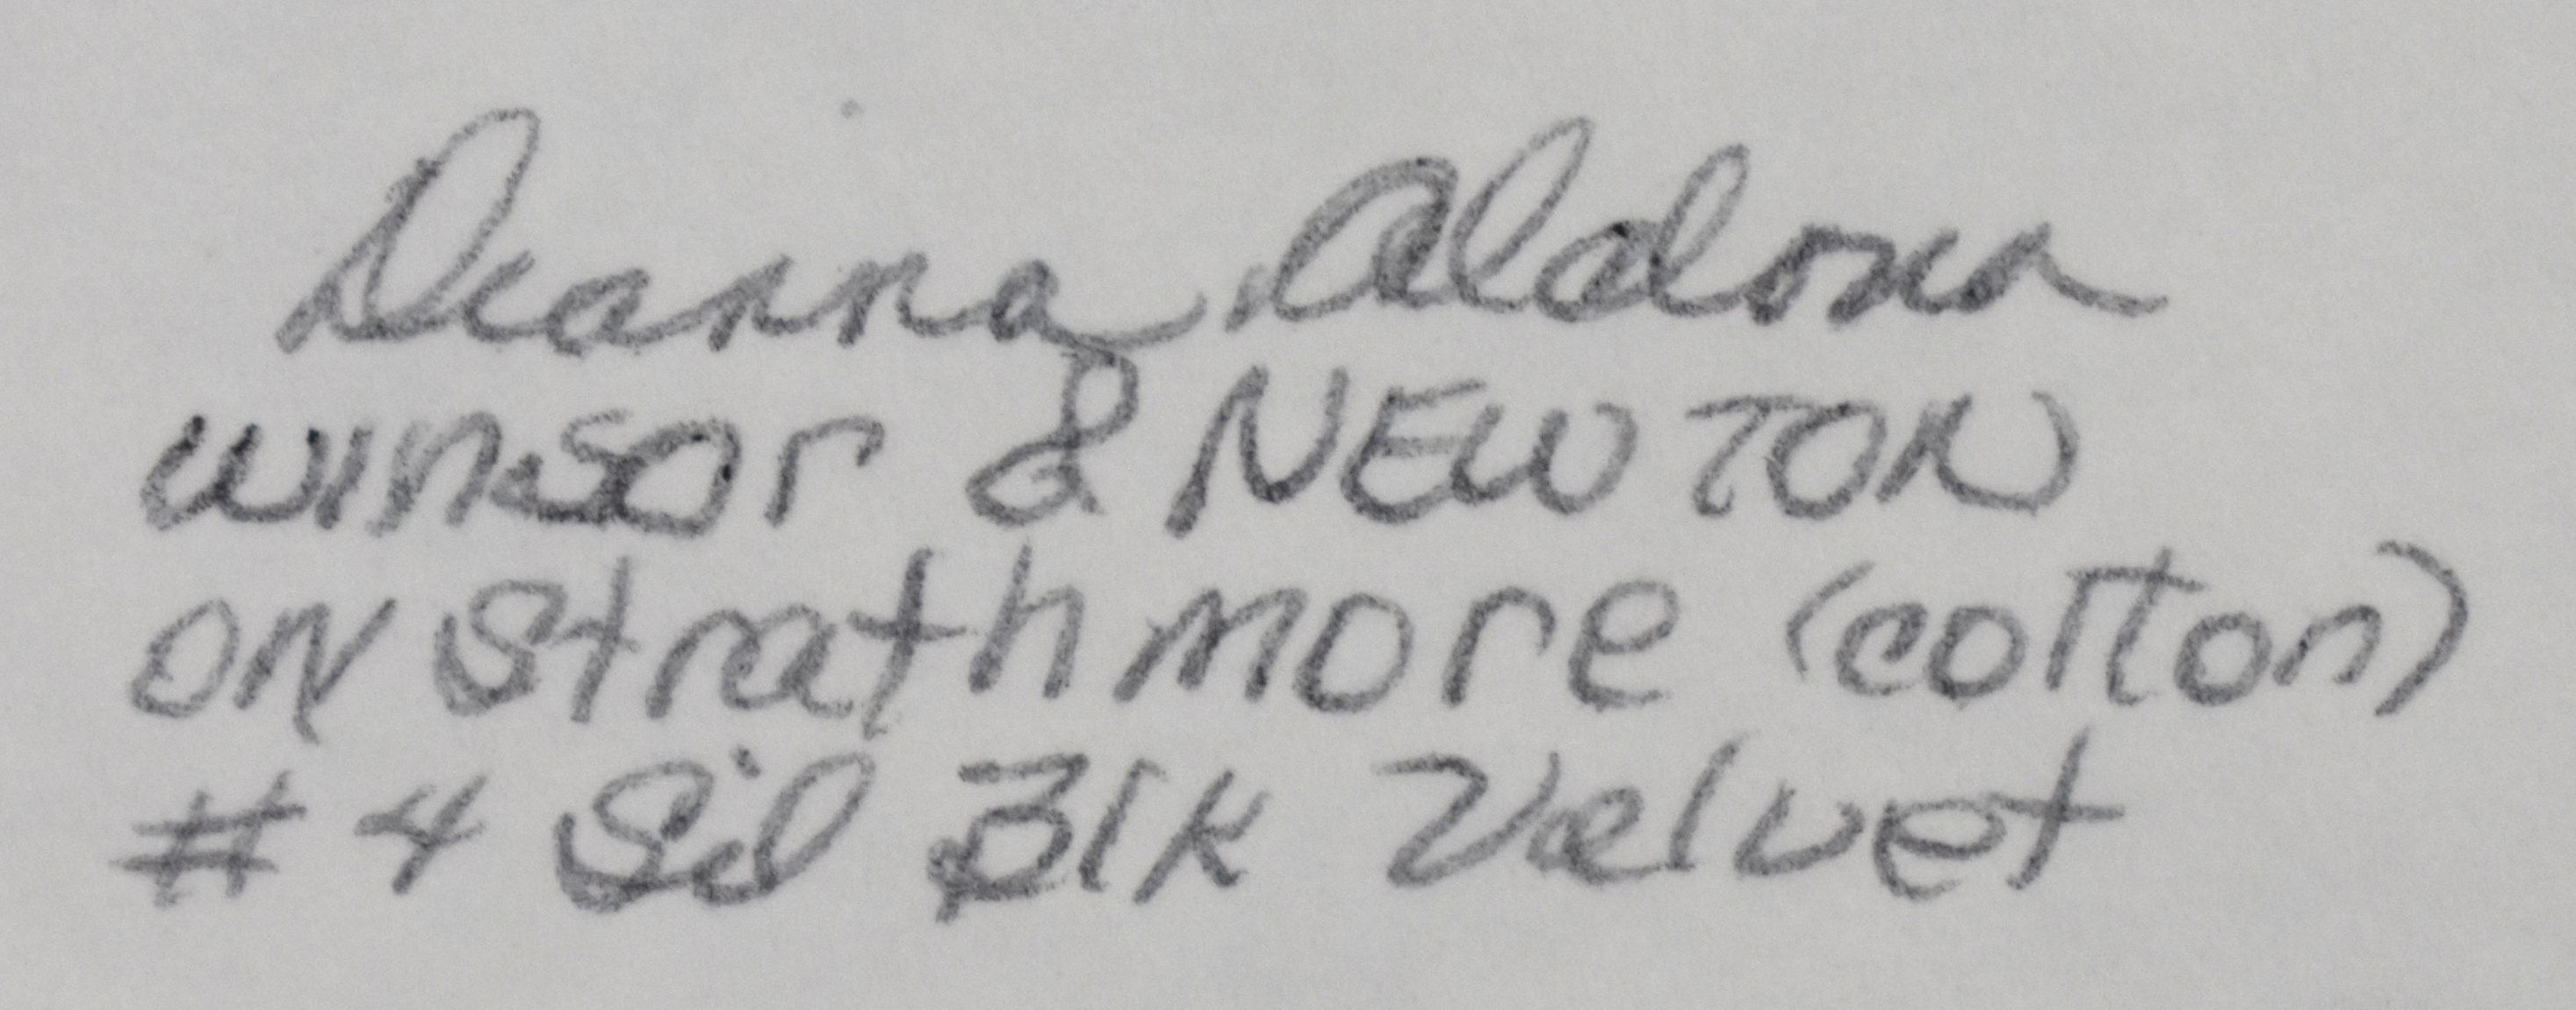 Dianna Aldona
winsor & NEWTON
ON Strathmore (cotton)
# 4 Sil Blk Velvet